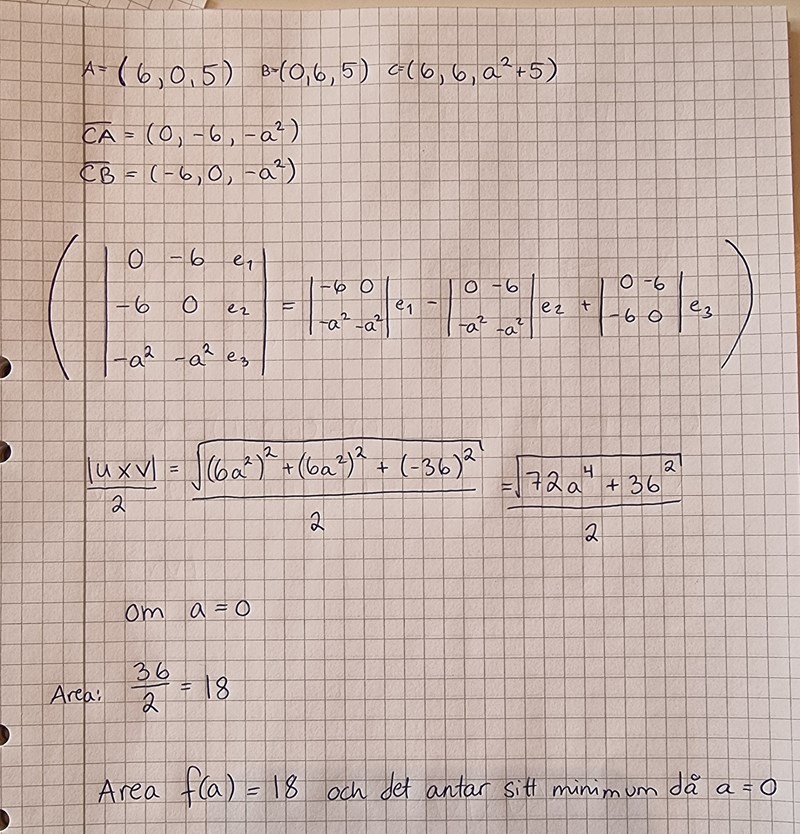 A=(6,0,5) B=(0,6,5) C=(6,6,a²+5)
C̅A̅ = (0, -6, -a²)
C̅B̅ = (-6, 0, -a²)
( | 0 -6 e₁ |
| -6 0 e₂ | = | -6 0 | e₁ - | 0 -6 | e₂ + | 0 -6 | e₃ )
| -a² -a² | | -a² -a² | | -6 0 |
| -a² -a² e₃ |
|u×v|/2 = √((6a²)² + (6a²)² + (-36)²)/2 = √(72a⁴ + 36²)/2
om a = 0
Area: 36/2 = 18
Area f(a) = 18 och det antar sitt minimum då a = 0